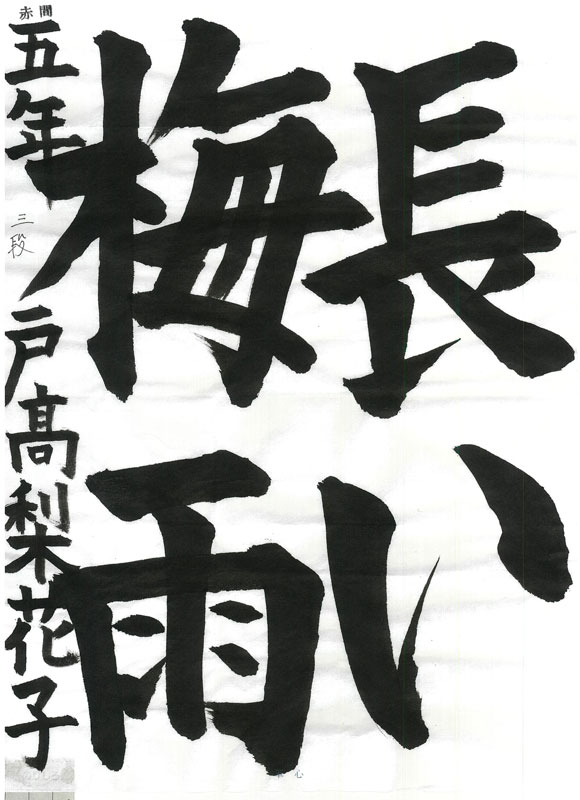 長い
梅雨
赤間
五年 三段 戸髙梨花子
心